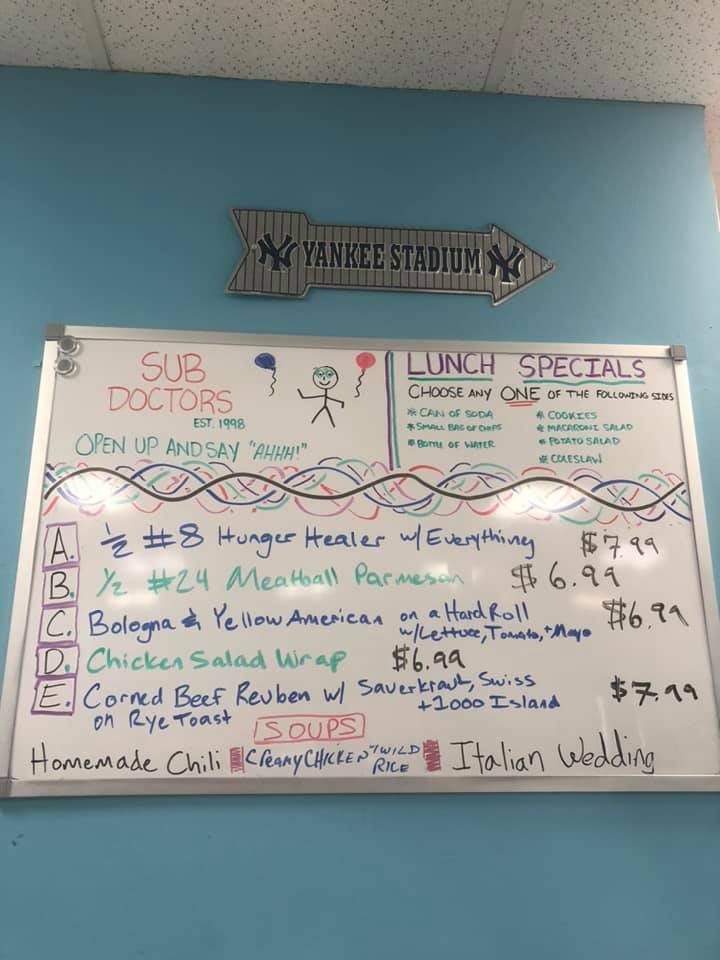 NY YANKEE STADIUM NY
SUB
DOCTORS
EST. 1998
OPEN UP AND SAY "AHHH!"
LUNCH SPECIALS
CHOOSE ANY ONE OF THE FOLLOWING SIDES
* CAN OF SODA
* SMALL BAG OF CHIPS
* BOTTLE OF WATER
* COOKIES
* MACARONI SALAD
* POTATO SALAD
* COLESLAW
A. ½ #8 Hunger Healer w/ Everything $7.99
B. ½ #24 Meatball Parmesan $6.99
C. Bologna & Yellow American on a Hard Roll $6.99
w/Lettuce, Tomato, + Mayo
D. Chicken Salad Wrap $6.99
E. Corned Beef Reuben w/ Sauerkraut, Swiss $7.99
+1000 Island
on Rye Toast
SOUPS
Homemade Chili CREAMY CHICKEN w/ WILD RICE Italian Wedding